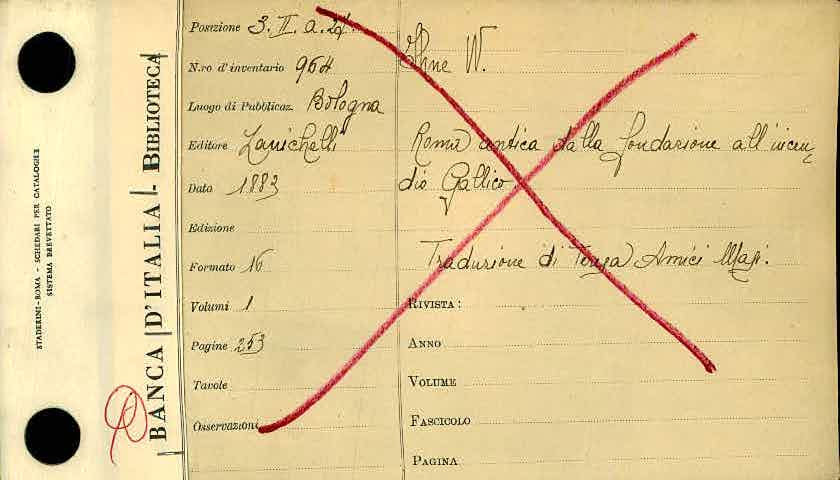 STADERINI-ROMA - SCHEDARI PER CATALOGHI
SISTEMA BREVETTATO
BANCA D'ITALIA - BIBLIOTECA
Posizione 3. II. a. 24
N.ro d'inventario 964
Luogo di Pubblicaz. Bologna
Editore Zanichelli
Data 1883
Edizione
Formato 16
Volumi 1
Pagine 253
Tavole
Osservazioni
Ihne W.
Roma antica dalla fondazione all'incen
dio Gallico.
Traduzione di Teresa Amici Masi.
RIVISTA:
ANNO
VOLUME
FASCICOLO
PAGINA